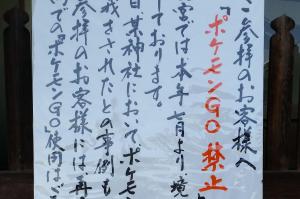 ご参拝のお客様へ
「ポケモンGO禁止」
宮では本年七月より、境
しております。
日某神社においてポケモ
戒されたとの事例も
参拝のお客様には再
での『ポケモンGO』使用はご